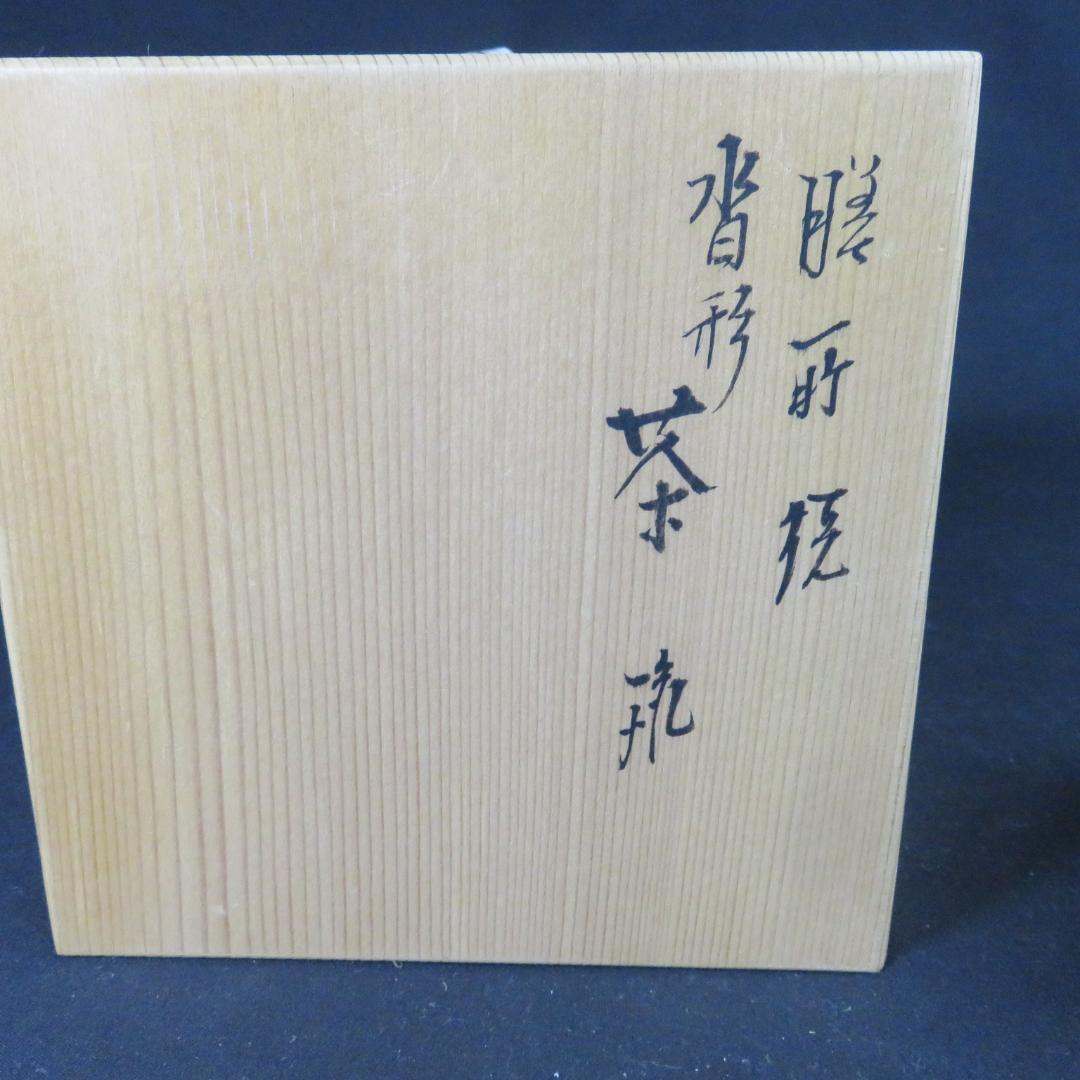 膳所焼
沓形茶碗